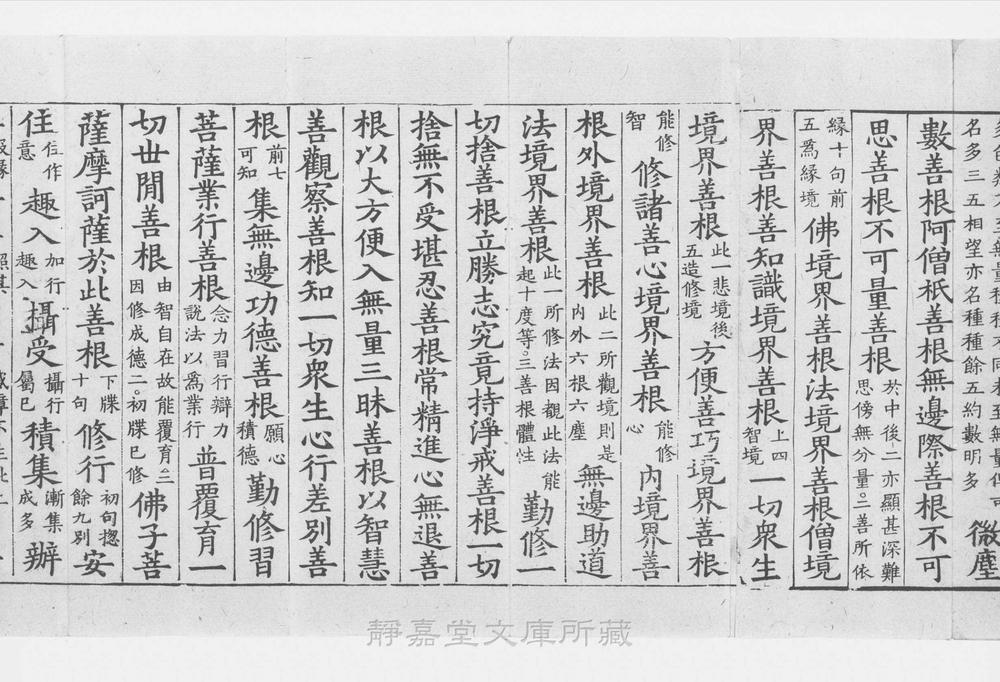 名多三五相望亦名種種餘五約數明多微塵
數善根阿僧祇善根無邊際善根不可
思善根不可量善根於中後二亦顯甚深難思傍無分量○二善所依
緣十句前五為緣境佛境界善根法境界善根僧境
界善根善知識境界善根上四智境一切眾生
境界善根此一悲境後五造修境方便善巧境界善根
能修智修諸善心境界善根能修心內境界善
根外境界善根此二所觀境則是內外六根六塵無邊助道
法境界善根此一所修法因觀此法能起十度等○三善根體性勤修一
切捨善根立勝志究竟持淨戒善根一切
捨無不受堪忍善根常精進心無退善
根以大方便入無量三昧善根以智慧
善觀察善根知一切眾生心行差別善
根前七可知集無邊功德善根願心積德勤修習
菩薩業行善根念力習行辯力說法以為業行普覆育一
切世間善根由智自在故能覆育○三因修成德二○初牒已修佛子菩
薩摩訶薩於此善根下牒十句修行初句揔餘九別安
住住作意趣入加行趣入攝受攝行屬已積集漸集成多辦
靜嘉堂文庫所藏